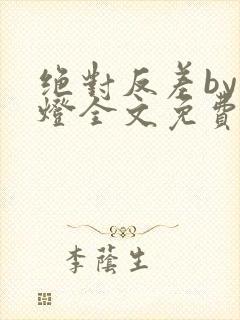 绝對反差by
燈全文免費
李蔭生